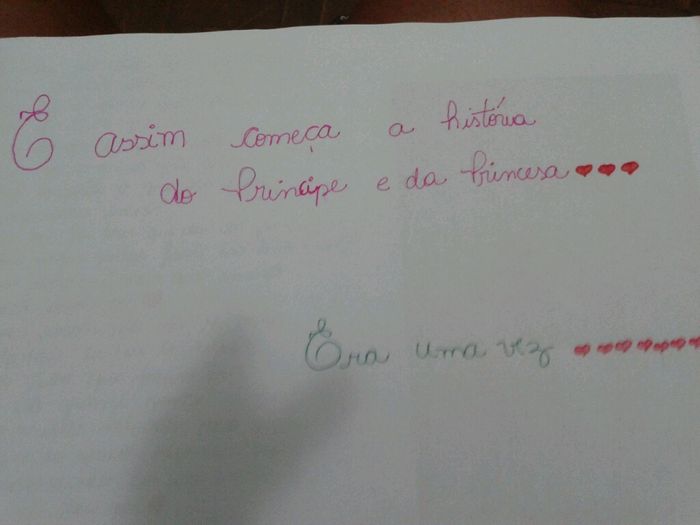 E assim começa a história
do Príncipe e da Princesa ❤❤❤
Era uma vez ❤❤❤❤❤❤❤